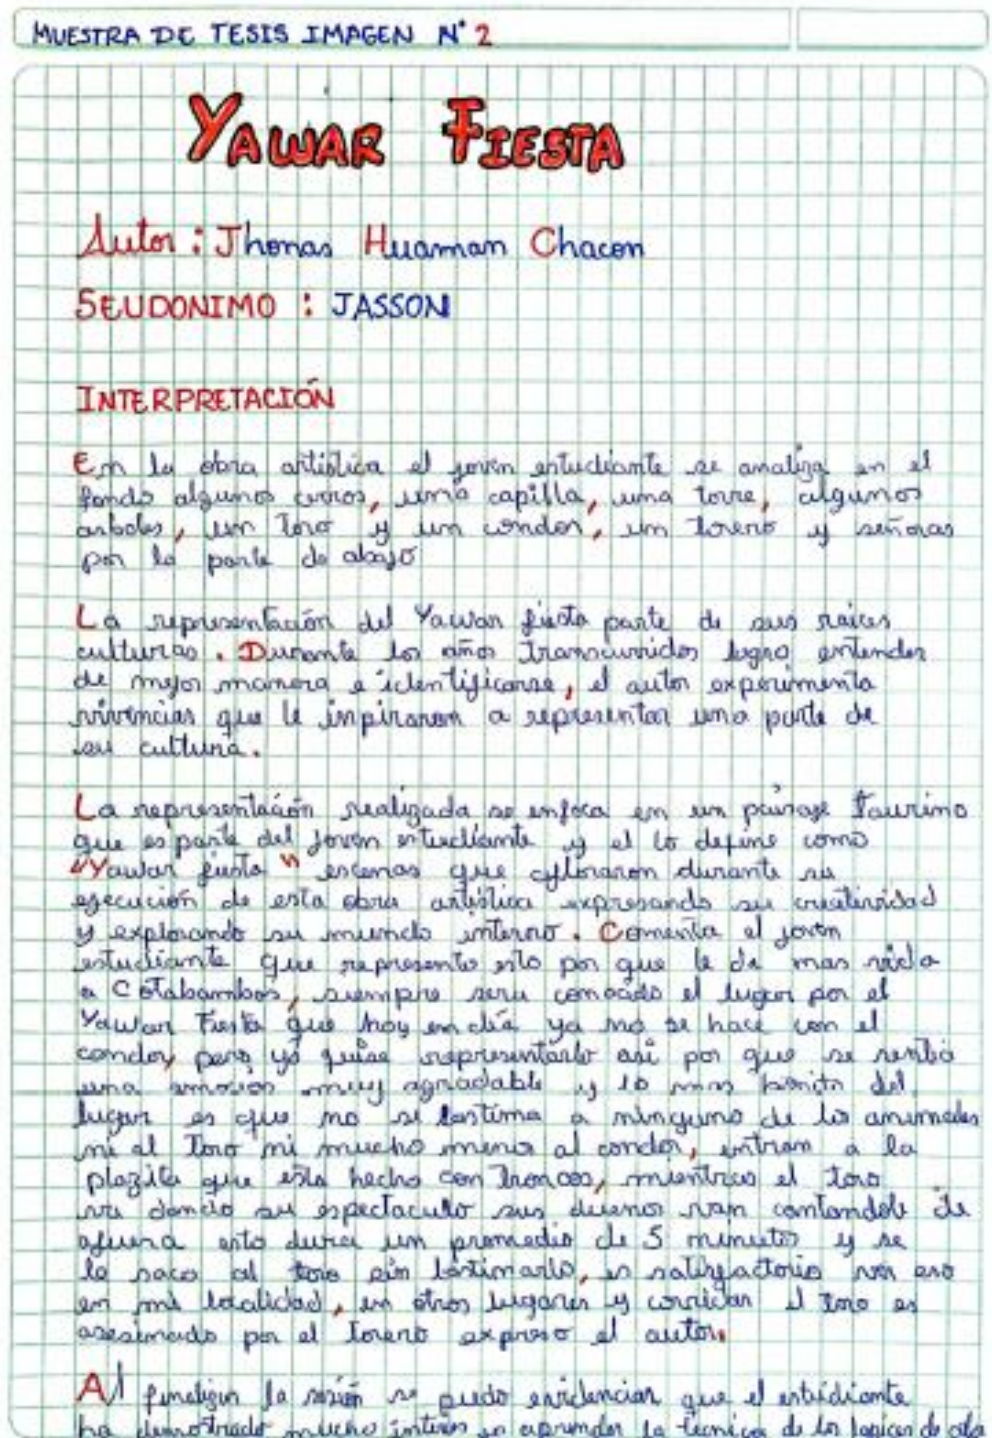 MUESTRA DE TESIS IMAGEN N° 2
YAWAR FIESTA
Autor : Jhonas Huaman Chacon
SEUDONIMO : JASSON
INTERPRETACIÓN
En la obra artistica el joven estudiante se analiza en el
fondo algunos cerros, una capilla, una torre, algunos
arboles, un toro y un condor, un torero y señoras
por la parte de abajo
La representación del Yawar fiesta parte de sus raices
culturas. Durante los años transcurridos logro entender
de mejor manera e identificarse, el autor experimenta
vivencias que le inpiraron a representar una parte de
su cultura.
La representación realizada se enfoca en un paisaje taurino
que es parte del joven estudiante y el lo define como
"Yawar fiesta" escenas que afloraron durante su
ejecución de esta obra artistica expresando su creatividad
y explorando su mundo interno. Comenta el joven
estudiante que represento esto por que le da mas vida
a Cotabambas, siempre sera conocido el lugar por el
Yawar Fiesta que hoy en día ya no se hace con el
condor, pero yo quise representarlo asi por que se sentia
una emocion muy agradable y lo mas bonito del
lugar es que no se lastima a ninguno de los animales
ni al toro ni mucho menos al condor, entran a la
plazita que esta hecho con troncos, mientras el toro
va dando su espectaculo sus duenos van cantandole de
afuera esto dura un promedio de 5 minutos y se
lo saca al toro sin lastimarlo, es satisfactorio ver eso
en mi localidad, en otros lugares y corridas el toro es
asesinado por el torero expreso el autor.
Al finalizar la sesión se puedo evidenciar que el estudiante
ha demostrado mucho interes en aprender la técnica de los lapices de